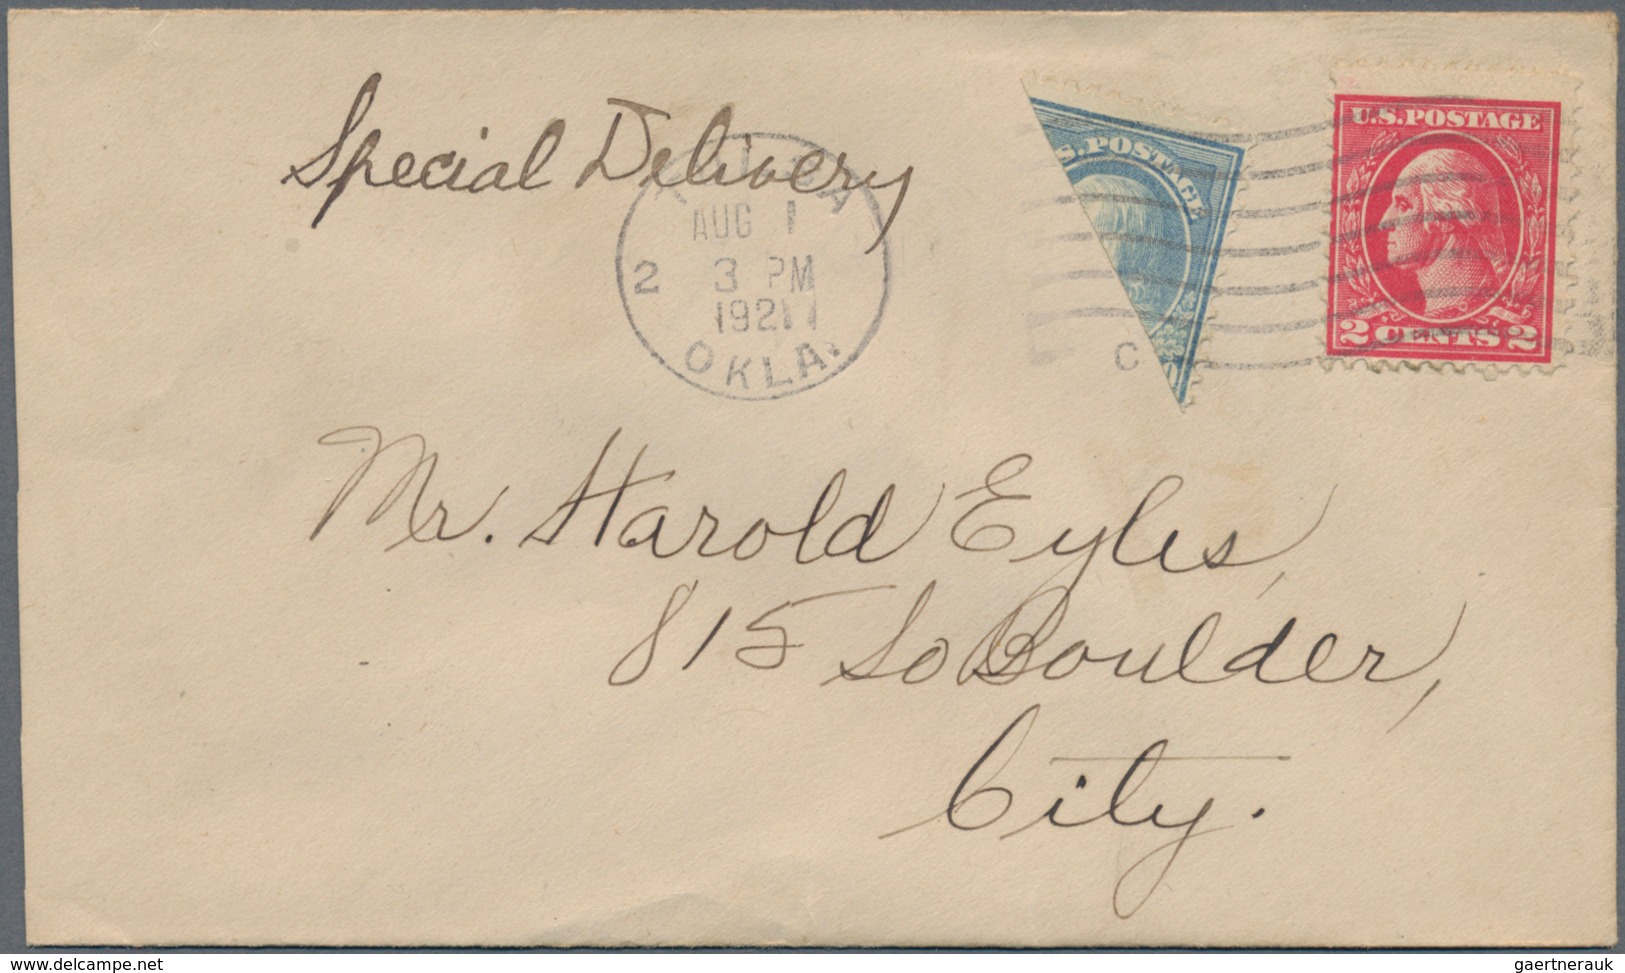 Special Delivery
TULSA
AUG 1
2 3 PM
1921
OKLA.
C
S. POSTAGE
0
U.S. POSTAGE
2 CENTS 2
Mr. Harold Eyles,
815 So Boulder,
City.
www.delcampe.net
gaertnerauk